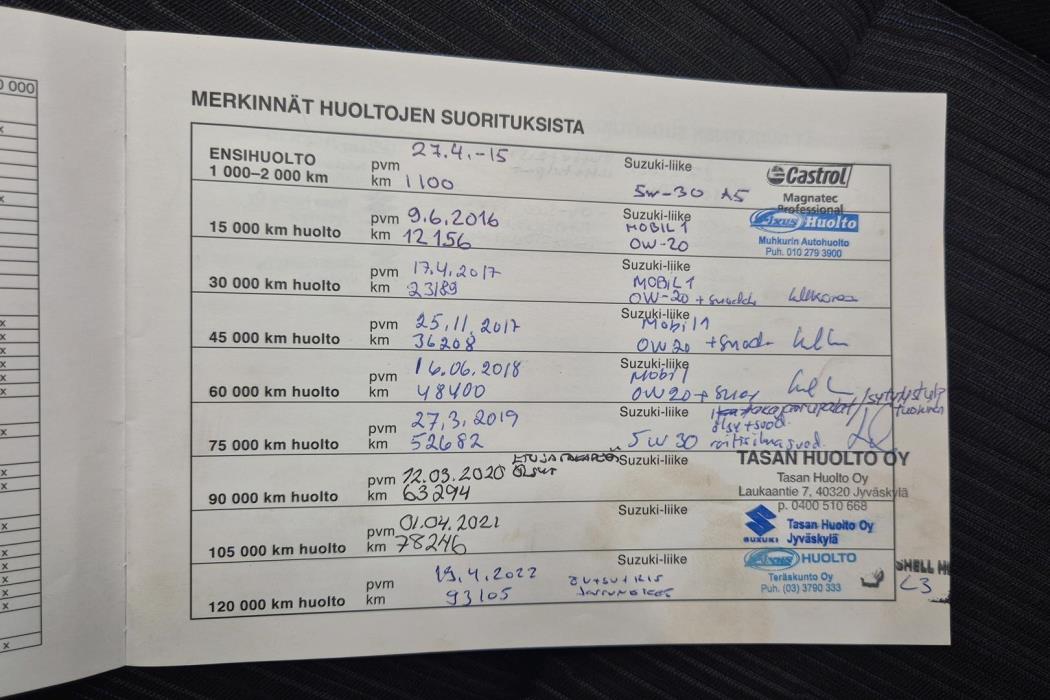 0 000
MERKINNÄT HUOLTOJEN SUORITUKSISTA
ENSIHUOLTO
1 000–2 000 km
pvm 27.4.-15
km 1100
Suzuki-liike
5W-30 A5
Castrol
Magnatec
Professional
15 000 km huolto
pvm 9.6.2016
km 12156
Suzuki-liike
MOBIL 1
0W-20
Axus Huolto
Muhkurin Autohuolto
Puh. 010 279 3900
30 000 km huolto
pvm 17.4.2017
km 23189
Suzuki-liike
MOBIL 1
0W-20 + suod
45 000 km huolto
pvm 25.11.2017
km 36208
Suzuki-liike
Mobil 1
0W20 + suod
60 000 km huolto
pvm 16.06.2018
km 48400
Suzuki-liike
Mobil 1
0W20 + suod
75 000 km huolto
pvm 27.3.2019
km 52682
Suzuki-liike
öljy + suod.
5W30 raitisilmasuod.
90 000 km huolto
pvm 12.03.2020
km 63294
Suzuki-liike
TASAN HUOLTO OY
Tasan Huolto Oy
Laukaantie 7, 40320 Jyväskylä
p. 0400 510 668
105 000 km huolto
pvm 01.04.2021
km 78246
Suzuki-liike
SUZUKI
Tasan Huolto Oy
Jyväskylä
120 000 km huolto
pvm 19.4.2022
km 93105
Suzuki-liike
Axus HUOLTO
Teräskunto Oy
Puh. (03) 3790 333
SHELL H
C3